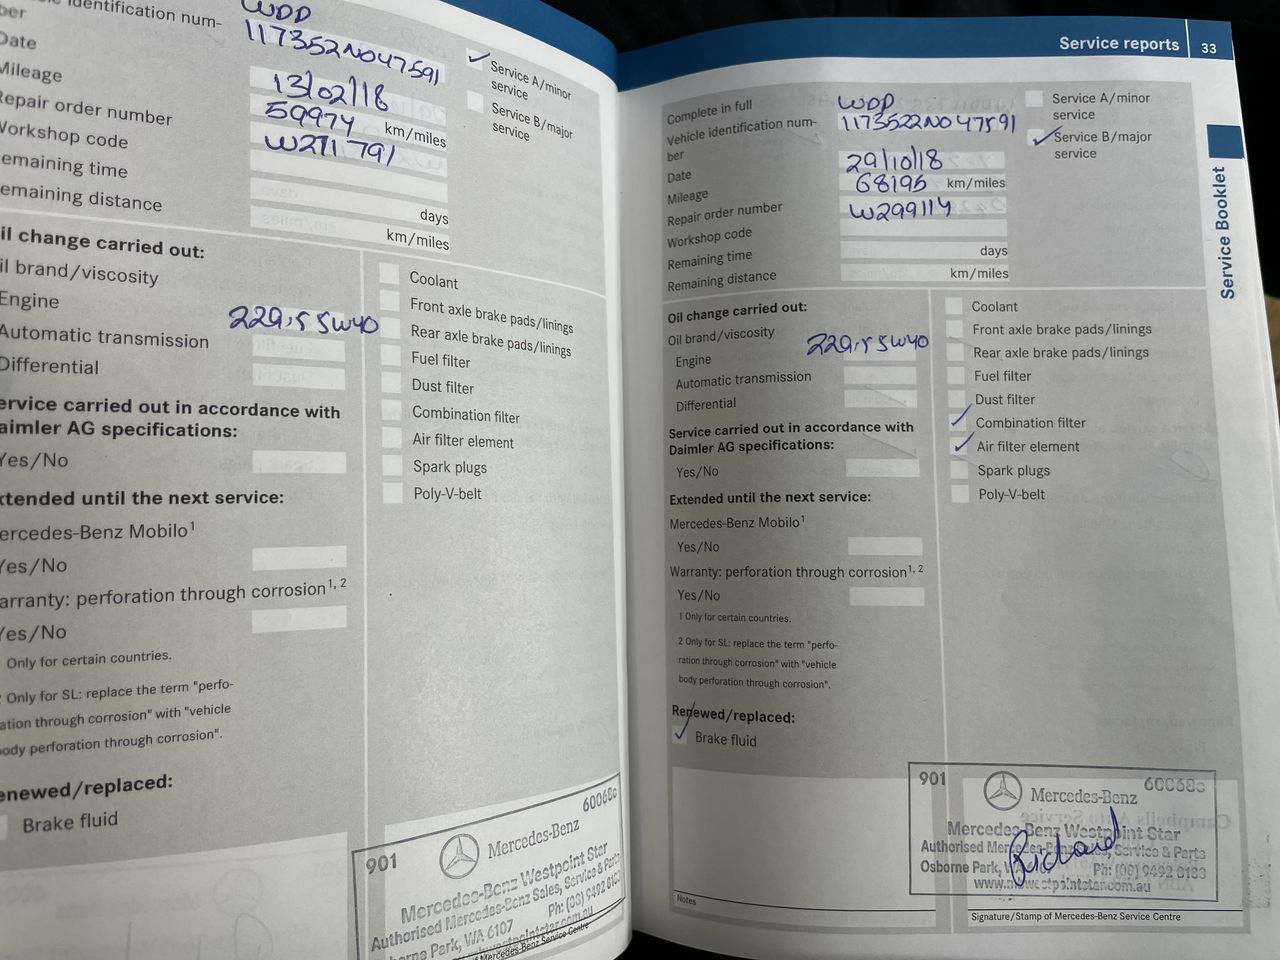 identification num-
ber
WDD
117352NO47591
Service A/minor
service
Service B/major
service
Date
13/02/18
Mileage
59974 km/miles
Repair order number
W271791
Workshop code
emaining time
days
emaining distance
km/miles
il change carried out:
il brand/viscosity
Engine
229.5 5W40
Automatic transmission
Differential
ervice carried out in accordance with
aimler AG specifications:
Yes/No
xtended until the next service:
ercedes-Benz Mobilo¹
Yes/No
arranty: perforation through corrosion¹, ²
Yes/No
Only for certain countries.
Only for SL: replace the term "perfo-
ation through corrosion" with "vehicle
ody perforation through corrosion".
enewed/replaced:
Brake fluid
Coolant
Front axle brake pads/linings
Rear axle brake pads/linings
Fuel filter
Dust filter
Combination filter
Air filter element
Spark plugs
Poly-V-belt
901
Mercedes-Benz
60068c
Mercedes-Benz Westpoint Star
Authorised Mercedes-Benz Sales, Service & Parts
borne Park, WA 6107 Ph: (08) 9492 8183
westpointstar.com.au
of Mercedes-Benz Service Centre
Service reports 33
Service Booklet
Complete in full
Vehicle identification num-
ber
WDD
1173522NO47591
Service A/minor
service
Service B/major
service
Date
29/10/18
Mileage
68195 km/miles
Repair order number
W299114
Workshop code
Remaining time
days
Remaining distance
km/miles
Oil change carried out:
Oil brand/viscosity
Engine
229.5 5W40
Automatic transmission
Differential
Service carried out in accordance with
Daimler AG specifications:
Yes/No
Extended until the next service:
Mercedes-Benz Mobilo¹
Yes/No
Warranty: perforation through corrosion¹, ²
Yes/No
1 Only for certain countries.
2 Only for SL: replace the term "perfo-
ration through corrosion" with "vehicle
body perforation through corrosion".
Renewed/replaced:
Brake fluid
Coolant
Front axle brake pads/linings
Rear axle brake pads/linings
Fuel filter
Dust filter
Combination filter
Air filter element
Spark plugs
Poly-V-belt
901
Mercedes-Benz
60068c
Mercedes-Benz Westpoint Star
Authorised Mercedes-Benz Sales, Service & Parts
Osborne Park, WA Ph: (08) 9492 8183
Richard
Notes
Signature/Stamp of Mercedes-Benz Service Centre